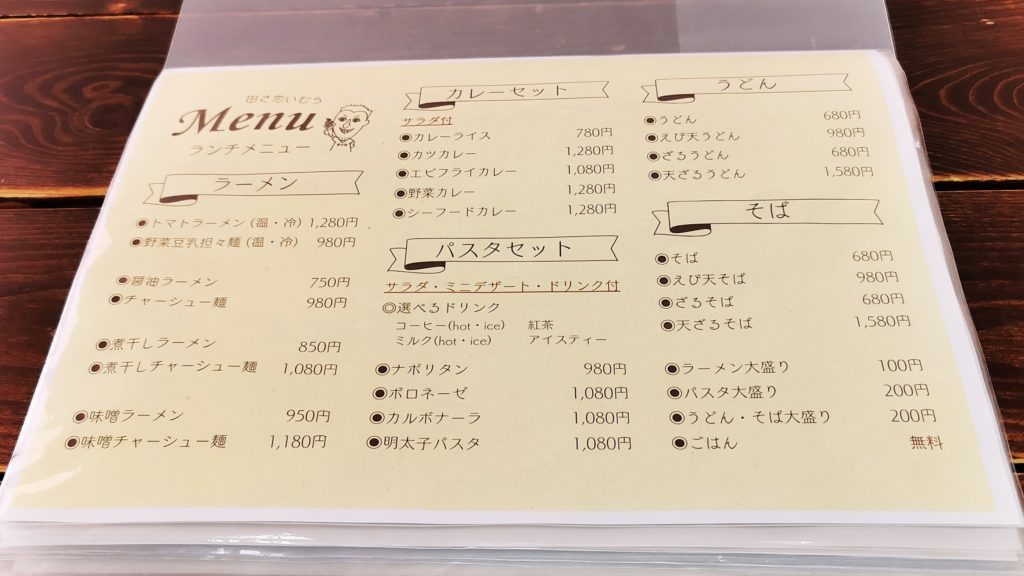 田さ恋いむう
Menu
ランチメニュー
ラーメン
◉トマトラーメン (温・冷) 1,280円
◉野菜豆乳担々麺 (温・冷) 980円
◉醤油ラーメン 750円
◉チャーシュー麺 980円
◉煮干しラーメン 850円
◉煮干しチャーシュー麺 1,080円
◉味噌ラーメン 950円
◉味噌チャーシュー麺 1,180円
カレーセット
サラダ付
◉カレーライス 780円
◉カツカレー 1,280円
◉エビフライカレー 1,080円
◉野菜カレー 1,280円
◉シーフードカレー 1,280円
パスタセット
サラダ・ミニデザート・ドリンク付
◎選べるドリンク
コーヒー(hot・ice) 紅茶
ミルク(hot・ice) アイスティー
◉ナポリタン 980円
◉ボロネーゼ 1,080円
◉カルボナーラ 1,080円
◉明太子パスタ 1,080円
うどん
◉うどん 680円
◉えび天うどん 980円
◉ざるうどん 680円
◉天ざるうどん 1,580円
そば
◉そば 680円
◉えび天そば 980円
◉ざるそば 680円
◉天ざるそば 1,580円
◉ラーメン大盛り 100円
◉パスタ大盛り 200円
◉うどん・そば大盛り 200円
◉ごはん 無料